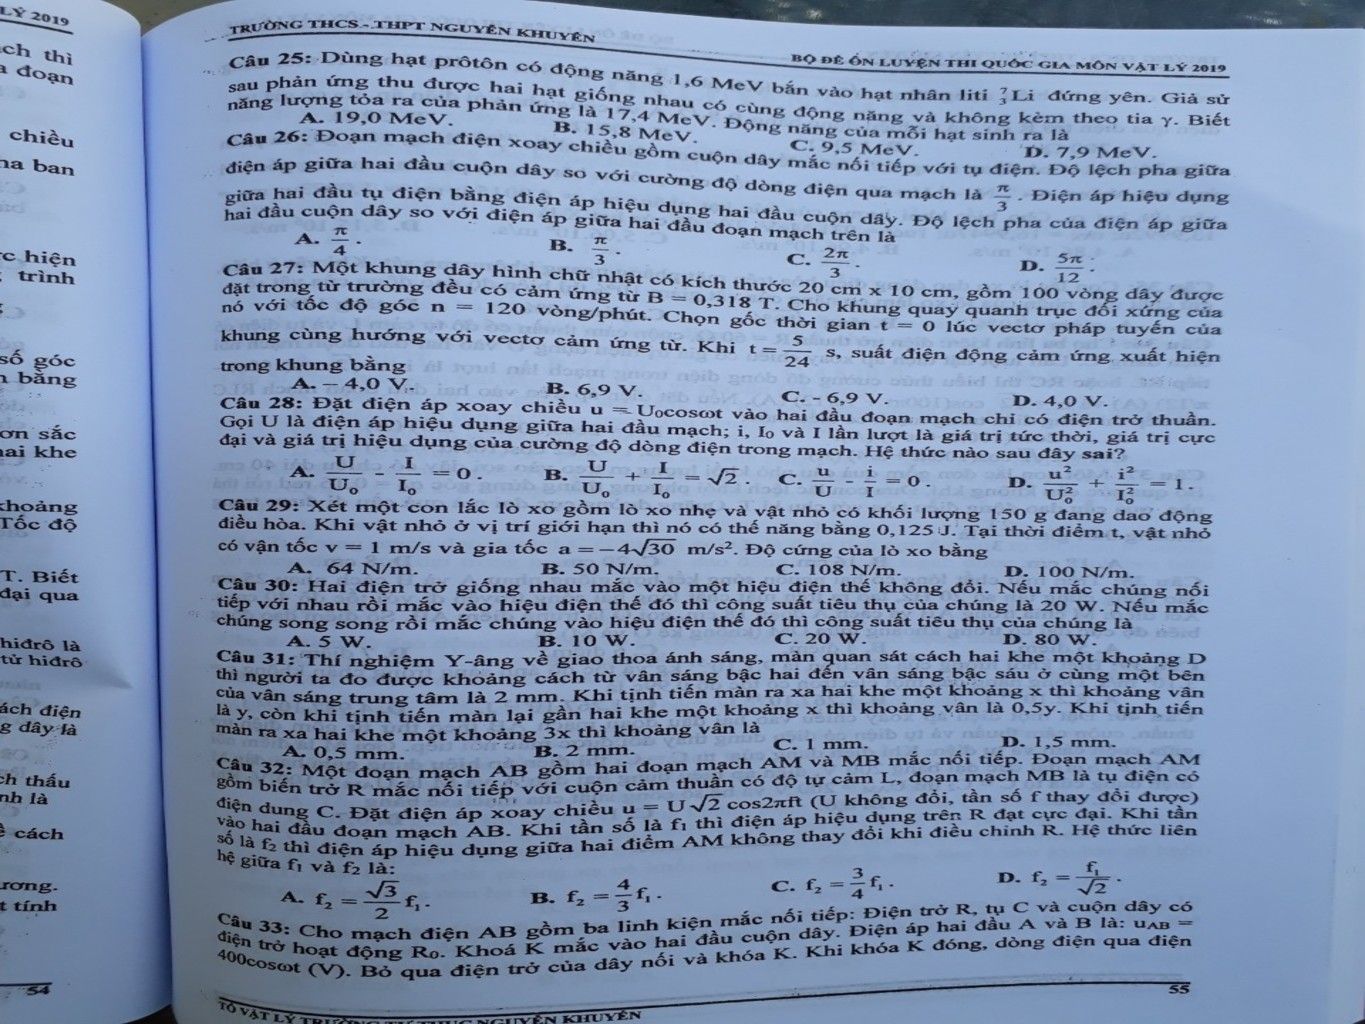 LÝ 2019
ch thì
a đoạn
chiều
na ban
c hiện
trình
số góc
n bằng
ơn sắc
ai khe
khoảng
Tốc độ
T. Biết
đại qua
hiđrô là
tử hiđrô
ách điện
g dây là
ch thấu
nh là
ề cách
ương.
t tính
54
TRƯỜNG THCS - THPT NGUYỄN KHUYẾN
BỘ ĐỀ ÔN LUYỆN THI QUỐC GIA MÔN VẬT LÝ 2019
Câu 25: Dùng hạt prôtôn có động năng 1,6 MeV bắn vào hạt nhân liti ⁷₃Li đứng yên. Giả sử
sau phản ứng thu được hai hạt giống nhau có cùng động năng và không kèm theo tia γ. Biết
năng lượng tỏa ra của phản ứng là 17,4 MeV. Động năng của mỗi hạt sinh ra là
A. 19,0 MeV. B. 15,8 MeV. C. 9,5 MeV. D. 7,9 MeV.
Câu 26: Đoạn mạch điện xoay chiều gồm cuộn dây mắc nối tiếp với tụ điện. Độ lệch pha giữa
điện áp giữa hai đầu cuộn dây so với cường độ dòng điện qua mạch là π/3. Điện áp hiệu dụng
giữa hai đầu tụ điện bằng điện áp hiệu dụng hai đầu cuộn dây. Độ lệch pha của điện áp giữa
hai đầu cuộn dây so với điện áp giữa hai đầu đoạn mạch trên là
A. π/4. B. π/3. C. 2π/3. D. 5π/12.
Câu 27: Một khung dây hình chữ nhật có kích thước 20 cm x 10 cm, gồm 100 vòng dây được
đặt trong từ trường đều có cảm ứng từ B = 0,318 T. Cho khung quay quanh trục đối xứng của
nó với tốc độ góc n = 120 vòng/phút. Chọn gốc thời gian t = 0 lúc vectơ pháp tuyến của
khung cùng hướng với vectơ cảm ứng từ. Khi t = 5/24 s, suất điện động cảm ứng xuất hiện
trong khung bằng
A. – 4,0 V. B. 6,9 V. C. - 6,9 V. D. 4,0 V.
Câu 28: Đặt điện áp xoay chiều u = U₀cosωt vào hai đầu đoạn mạch chỉ có điện trở thuần.
Gọi U là điện áp hiệu dụng giữa hai đầu mạch; i, I₀ và I lần lượt là giá trị tức thời, giá trị cực
đại và giá trị hiệu dụng của cường độ dòng điện trong mạch. Hệ thức nào sau đây sai?
A. U/U₀ - I/I₀ = 0 B. U/U₀ + I/I₀ = √2. C. u/U - i/I = 0. D. u²/U₀² + i²/I₀² = 1.
Câu 29: Xét một con lắc lò xo gồm lò xo nhẹ và vật nhỏ có khối lượng 150 g đang dao động
điều hòa. Khi vật nhỏ ở vị trí giới hạn thì nó có thế năng bằng 0,125 J. Tại thời điểm t, vật nhỏ
có vận tốc v = 1 m/s và gia tốc a = −4√30 m/s². Độ cứng của lò xo bằng
A. 64 N/m. B. 50 N/m. C. 108 N/m. D. 100 N/m.
Câu 30: Hai điện trở giống nhau mắc vào một hiệu điện thế không đổi. Nếu mắc chúng nối
tiếp với nhau rồi mắc vào hiệu điện thế đó thì công suất tiêu thụ của chúng là 20 W. Nếu mắc
chúng song song rồi mắc chúng vào hiệu điện thế đó thì công suất tiêu thụ của chúng là
A. 5 W. B. 10 W. C. 20 W. D. 80 W.
Câu 31: Thí nghiệm Y-âng về giao thoa ánh sáng, màn quan sát cách hai khe một khoảng D
thì người ta đo được khoảng cách từ vân sáng bậc hai đến vân sáng bậc sáu ở cùng một bên
của vân sáng trung tâm là 2 mm. Khi tịnh tiến màn ra xa hai khe một khoảng x thì khoảng vân
là y, còn khi tịnh tiến màn lại gần hai khe một khoảng x thì khoảng vân là 0,5y. Khi tịnh tiến
màn ra xa hai khe một khoảng 3x thì khoảng vân là
A. 0,5 mm. B. 2 mm. C. 1 mm. D. 1,5 mm.
Câu 32: Một đoạn mạch AB gồm hai đoạn mạch AM và MB mắc nối tiếp. Đoạn mạch AM
gồm biến trở R mắc nối tiếp với cuộn cảm thuần có độ tự cảm L, đoạn mạch MB là tụ điện có
điện dung C. Đặt điện áp xoay chiều u = U√2 cos2πft (U không đổi, tần số f thay đổi được)
vào hai đầu đoạn mạch AB. Khi tần số là f₁ thì điện áp hiệu dụng trên R đạt cực đại. Khi tần
số là f₂ thì điện áp hiệu dụng giữa hai điểm AM không thay đổi khi điều chỉnh R. Hệ thức liên
hệ giữa f₁ và f₂ là:
A. f₂ = √3/2 f₁. B. f₂ = 4/3 f₁. C. f₂ = 3/4 f₁. D. f₂ = f₁/√2.
Câu 33: Cho mạch điện AB gồm ba linh kiện mắc nối tiếp: Điện trở R, tụ C và cuộn dây có
điện trở hoạt động R₀. Khoá K mắc vào hai đầu cuộn dây. Điện áp hai đầu A và B là: uAB =
400cosωt (V). Bỏ qua điện trở của dây nối và khóa K. Khi khóa K đóng, dòng điện qua điện
55
TỔ VẬT LÝ TRƯỜNG TƯ THỤC NGUYỄN KHUYẾN